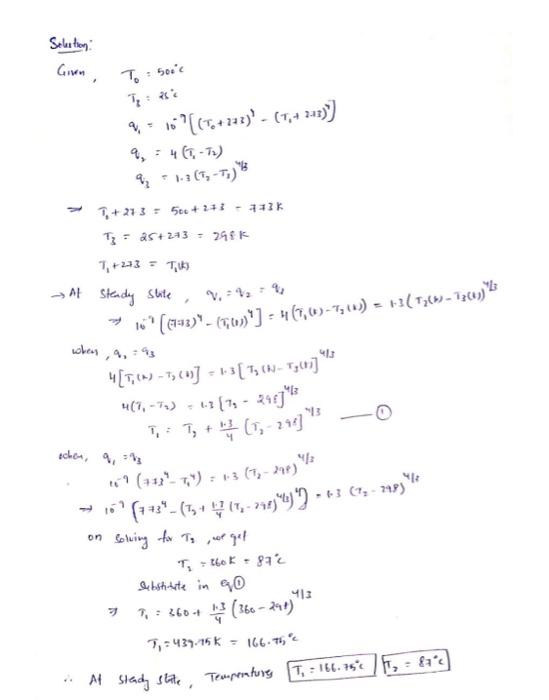 Solution:
Given, T₀ = 500°c
T₃ = 25°c
q₁ = 10⁻⁹[(T₀+273)⁴ - (T₁+273)⁴]
q₂ = 4 (T₁-T₂)
q₃ = 1.3 (T₂-T₃)^4/3
⇒ T₀+273 = 500+273 = 773K
T₃ = 25+273 = 298K
T₁+273 = T₁(K)
→ At Steady State, q₁ = q₂ = q₃
⇒ 10⁻⁹[(773)⁴ - (T₁(K))⁴] = 4(T₁(K)-T₂(K)) = 1.3(T₂(K)-T₃(K))^4/3
when, q₂ = q₃
4[T₁(K) - T₂(K)] = 1.3[T₂(K)-T₃(K)]^4/3
4(T₁-T₂) = 1.3[T₂ - 298]^4/3
T₁ = T₂ + 1.3/4 [T₂-298]^4/3 —— ①
when, q₁ = q₃
10⁻⁹ (773⁴ - T₁⁴) = 1.3 (T₂-298)^4/3
⇒ 10⁻⁹ [773⁴ - (T₂ + 1.3/4 (T₂-298)^4/3)⁴] = 1.3 (T₂-298)^4/3
on solving for T₂, we get
T₂ = 360K = 87°c
Substitute in eq①
⇒ T₁ = 360 + 1.3/4 (360-298)^4/3
T₁ = 439.75K = 166.75°c
∴ At Steady State, Temperatures T₁ = 166.75°c T₂ = 87°c